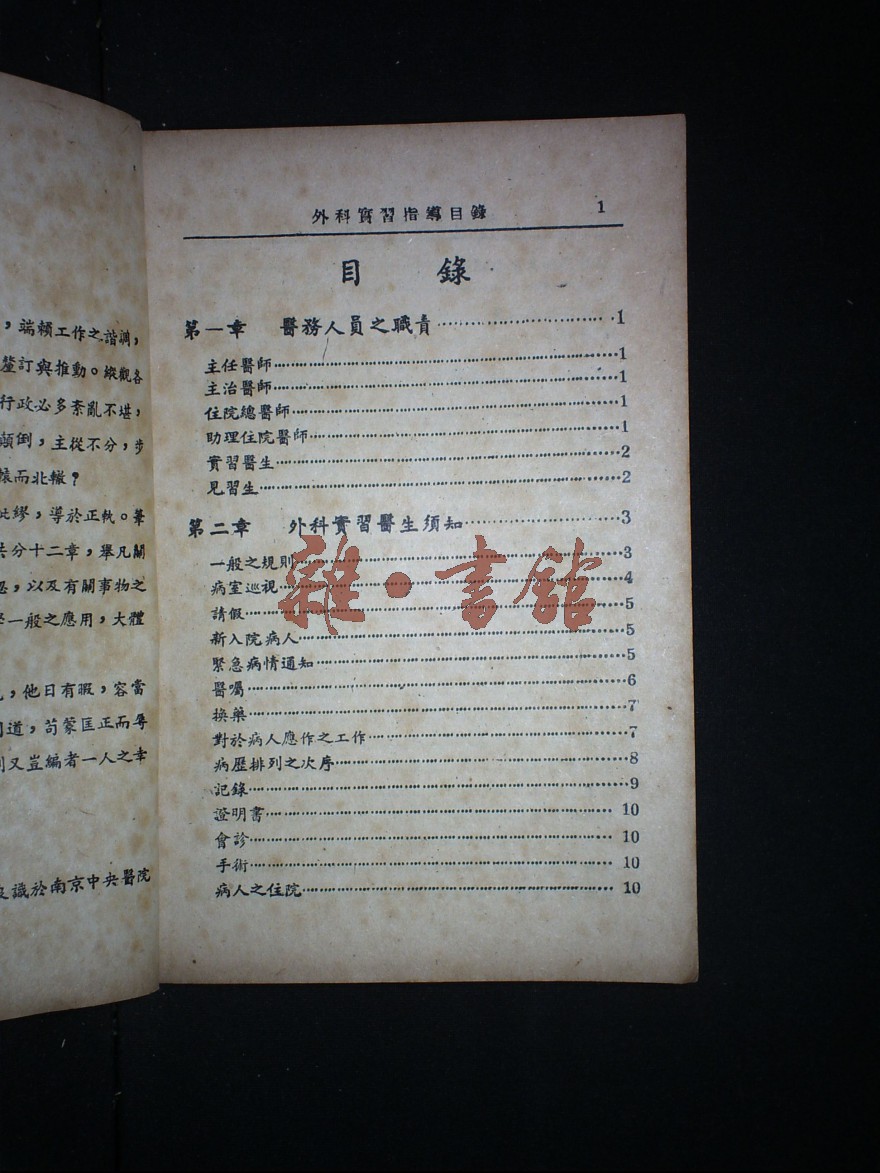 ，端賴工作之諧調，
釐訂與推動。縱觀各
行政必多紊亂不堪，
顛倒，主從不分，步
轅而北轍？
此繆，導於正軌。
共分十二章，舉凡關
忽，以及有關事物之
一般之應用，大體
，他日有暇，容當
同道，苟蒙匡正而辱
則又豈編者一人之幸
識於南京中央醫院
外科實習指導目錄 1
目 錄
第一章 醫務人員之職責……………………1
主任醫師……………………1
主治醫師……………………1
住院總醫師……………………1
助理住院醫師……………………1
實習醫生……………………2
見習生……………………2
第二章 外科實習醫生須知……………………3
一般之規則……………………3
病室巡視……………………4
請假……………………5
新入院病人……………………5
緊急病情通知……………………5
醫囑……………………6
換藥……………………7
對於病人應作之工作……………………7
病歷排列之次序……………………8
記錄……………………9
證明書……………………10
會診……………………10
手術……………………10
病人之住院……………………10
雜·書館